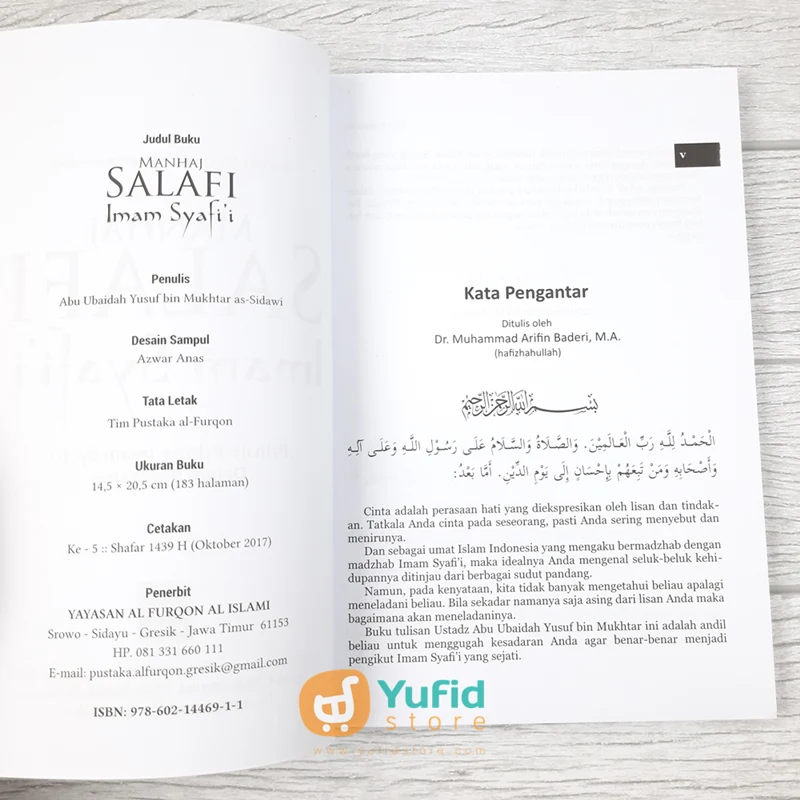 Judul Buku
MANHAJ
SALAFI
Imam Syafi'i
Penulis
Abu Ubaidah Yusuf bin Mukhtar as-Sidawi
Desain Sampul
Azwar Anas
Tata Letak
Tim Pustaka al-Furqon
Ukuran Buku
14,5 × 20,5 cm (183 halaman)
Cetakan
Ke - 5 :: Shafar 1439 H (Oktober 2017)
Penerbit
YAYASAN AL FURQON AL ISLAMI
Srowo - Sidayu - Gresik - Jawa Timur 61153
HP. 081 331 660 111
E-mail: pustaka.alfurqon.gresik@gmail.com
ISBN: 978-602-14469-1-1
v
Kata Pengantar
Ditulis oleh
Dr. Muhammad Arifin Baderi, M.A.
(hafizhahullah)
بِسْمِ اللَّهِ الرَّحْمَنِ الرَّحِيمِ
الْحَمْدُ لِلَّهِ رَبِّ الْعَالَمِيْنَ. وَالصَّلَاةُ وَالسَّلَامُ عَلَى رَسُوْلِ اللَّهِ وَعَلَى آلِهِ
وَأَصْحَابِهِ وَمَنْ تَبِعَهُمْ بِإِحْسَانٍ إِلَى يَوْمِ الدِّيْنِ. أَمَّا بَعْدُ:
Cinta adalah perasaan hati yang diekspresikan oleh lisan dan tindak-
an. Tatkala Anda cinta pada seseorang, pasti Anda sering menyebut dan
menirunya.
Dan sebagai umat Islam Indonesia yang mengaku bermadzhab dengan
madzhab Imam Syafi'i, maka idealnya Anda mengenal seluk-beluk kehi-
dupannya ditinjau dari berbagai sudut pandang.
Namun, pada kenyataan, kita tidak banyak mengetahui beliau apalagi
meneladani beliau. Bila sekadar namanya saja asing dari lisan Anda maka
bagaimana akan meneladaninya.
Buku tulisan Ustadz Abu Ubaidah Yusuf bin Mukhtar ini adalah andil
beliau untuk menggugah kesadaran Anda agar benar-benar menjadi
pengikut Imam Syafi'i yang sejati.
Yufid
store
www.yufidstore.com